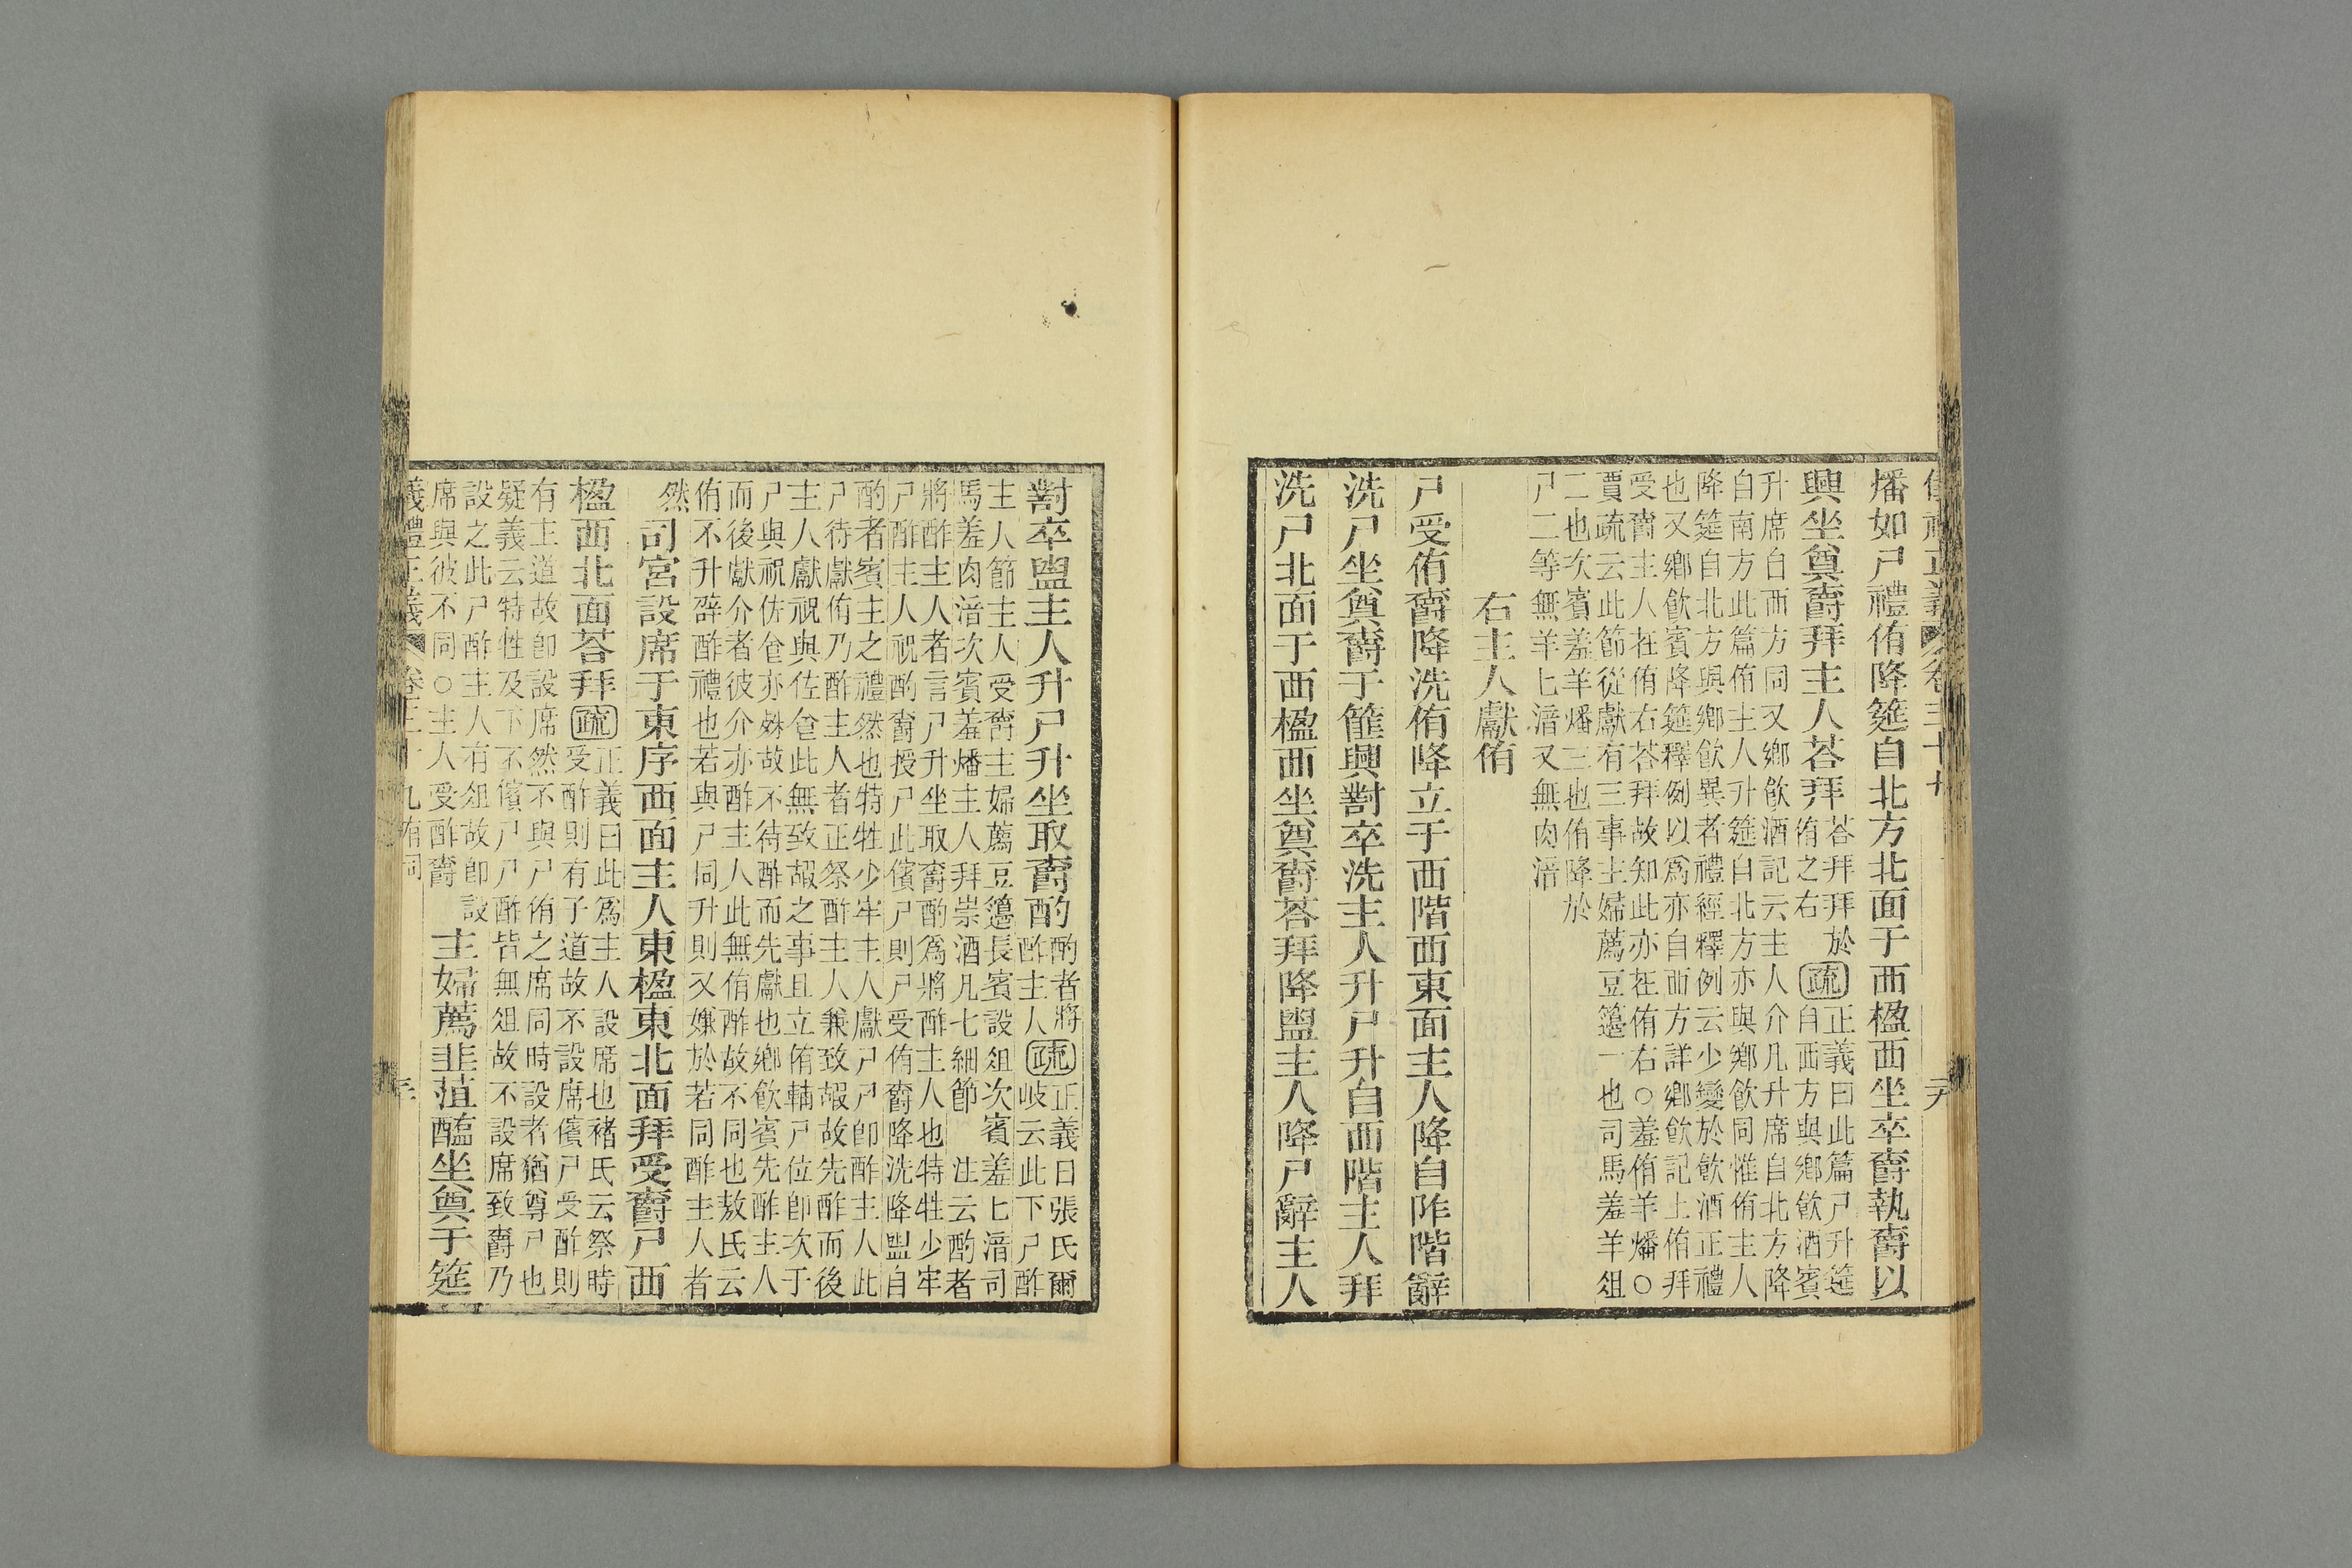 燔如尸禮侑降筵自北方北面于西楹西坐卒爵執爵以
興坐奠爵拜主人荅拜
荅拜拜於
侑之右
疏
正義曰此篇尸升筵
自西方與鄉飲酒賓
升席自西方同又鄉飲酒記云主人介凡升席自北方降
自南方此篇侑主人升筵自北方亦與鄉飲同惟侑主人
降筵自北方與鄉飲異者禮經釋例云少變於飲酒正禮
也又鄉飲賓降筵釋例以爲亦自西方詳鄉飲記上侑拜
受爵主人在侑右荅拜故知此亦在侑右○羞侑羊燔○
賈疏云此節從獻有三事主婦薦豆籩一也司馬羞羊俎
二也次賓羞羊燔三也侑降於
尸二等無羊匕湆又無肉湆
右主人獻侑
尸受侑爵降洗侑降立于西階西東面主人降自阼階辭
洗尸坐奠爵于篚興對卒洗主人升尸升自西階主人拜
洗尸北面于西楹西坐奠爵荅拜降盥主人降尸辭主人
對卒盥主人升尸升坐取爵酌
酌者將
酢主人
疏
正義曰張氏爾
岐云此下尸酢
主人節主人受爵主婦薦豆籩長賓設俎次賓羞匕湆司
馬羞肉湆次賓羞燔主人拜崇酒凡七細節 注云酌者
將酢主人者言尸升坐取爵酌爲將酢主人也特牲少牢
尸酢主人祝酌爵授尸此儐尸則尸受侑爵降洗降盥自
酌者賓主之禮然也特牲少牢主人獻尸尸卽酢主人此
尸待獻侑乃酢主人者正祭酢主人兼致嘏故先酢而後
主人獻祝與佐食此無致嘏之事且立侑輔尸位卽次于
尸與祝佐食亦殊故不待酢而先獻也鄉飲賓先酢主人
而後獻介者彼介亦酢主人此無侑酢故不同也敖氏云
侑不升辟酢禮也若與尸同升則又嫌於若同酢主人者
然
司宮設席于東序西面主人東楹東北面拜受爵尸西
楹西北面荅拜
疏
正義曰此爲主人設席也褚氏云祭時
受酢則有子道故不設席儐尸受酢則
有主道故卽設席然不與尸侑之席同時設者猶尊尸也
疑義云特牲及下不儐尸尸酢皆無俎故不設席致爵乃
設之此尸酢主人有俎故卽設
席與彼不同○主人受酢爵
主婦薦韭菹醢坐奠于筵